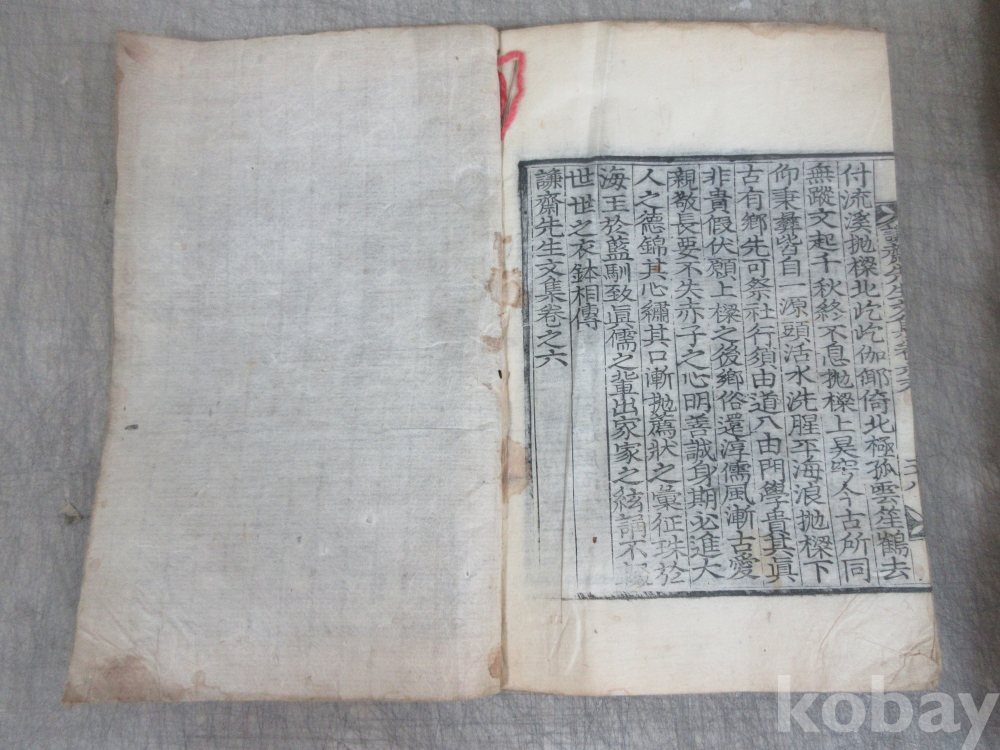 付流溪抛樑北屹屹伽倻倚北極孤雲笙鶴去
無蹤文起千秋終不息抛樑上昊穹人今古所同
仰秉彛皆自一源頭活水洗腥平海浪抛樑下
古有鄉先可祭社行須由道入由門學貴其眞
非貴假伏願上樑之後鄉俗還淳儒風漸古愛
親敬長要不失赤子之心明善誠身期必進大
人之德錦其心繡其口漸抛薦狀之彙征珠於
海玉於藍馴致眞儒之輩出家家之絃誦不
世世之衣鉢相傳
謙齋先生文集卷之六
kobay